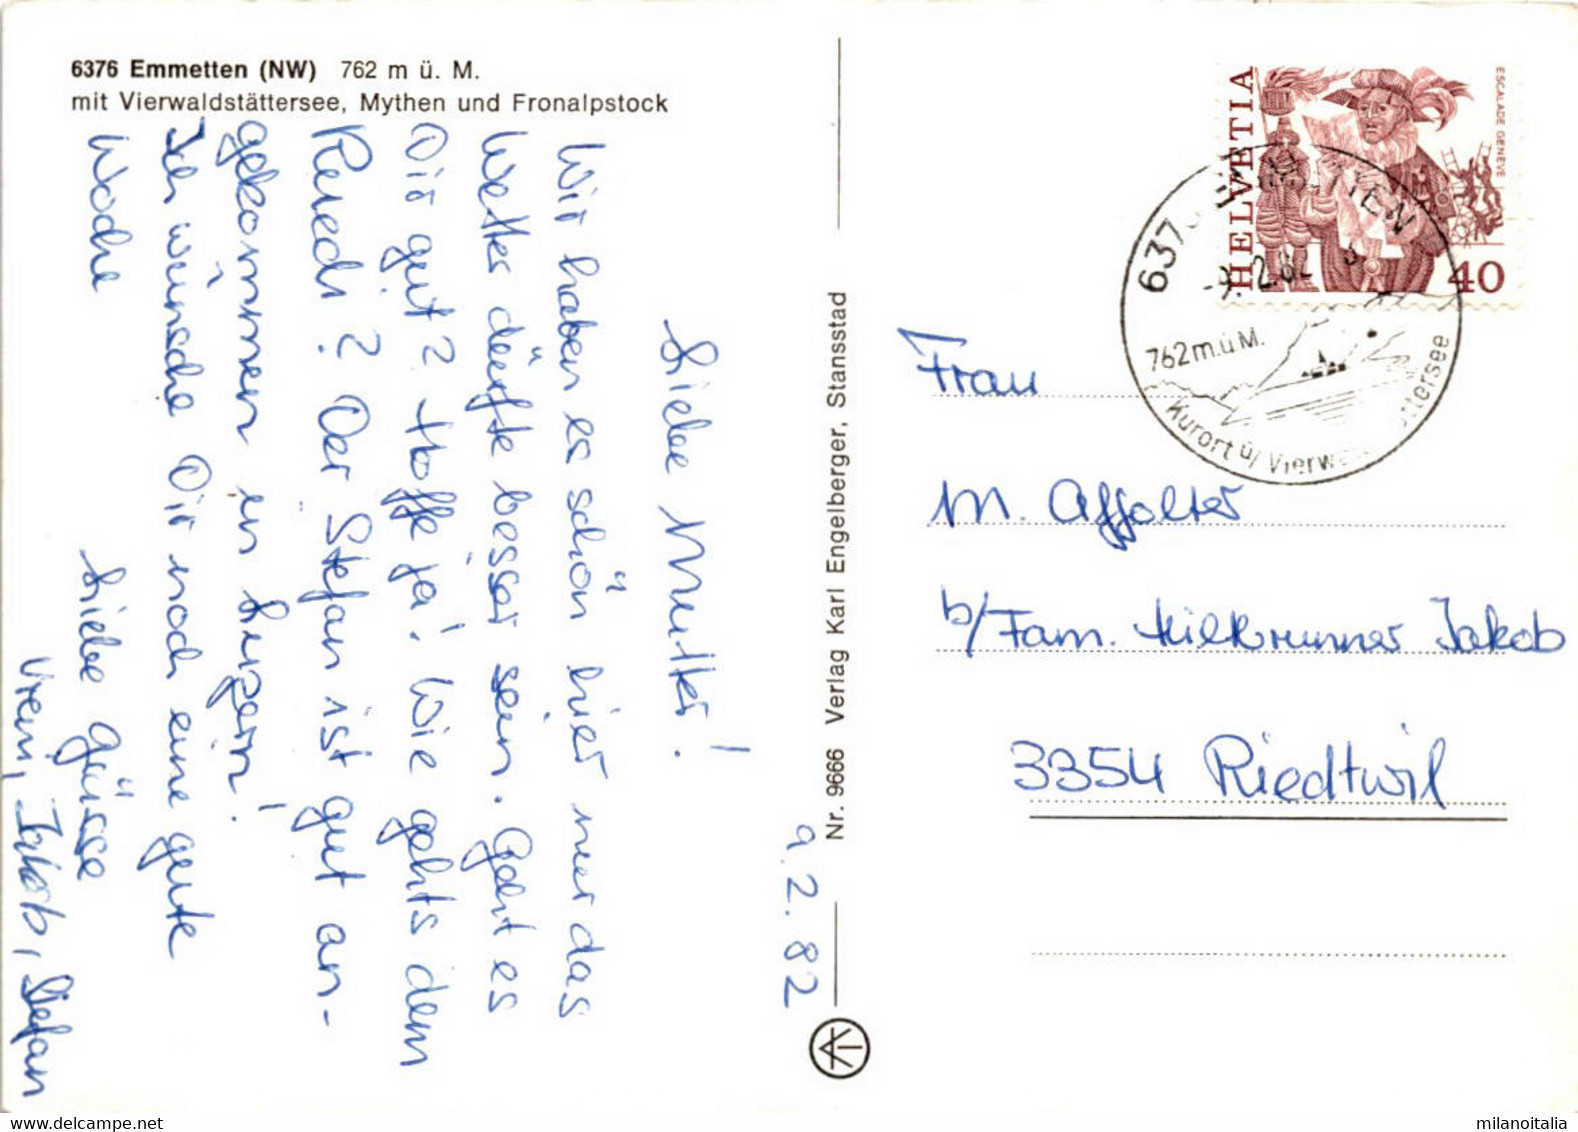 6376 Emmetten (NW) 762 m ü. M.
mit Vierwaldstättersee, Mythen und Fronalpstock
9.2.82
Liebe Mutter!
Wir haben es schön hier nur das
Wetter dürfte besser sein. Geht es
Dir gut? Hoffe ja! Wie gehts dem
Ruedi? Der Stefan ist gut an-
gekommen in Luzern!
Ich wünsche Dir noch eine gute
Woche
Liebe Grüsse
Vreni, Jakob, Stefan
Nr. 9666 Verlag Karl Engelberger, Stansstad
HELVETIA
ESCALADE GENÈVE
40
6376 EMMETTEN
-9.2.82
762 m.ü M.
Kurort ü/ Vierwa ttersee
Frau
M. Affolter
b/Fam. Hilkbrunner Jakob
3354 Riedtwil
milanoitalia